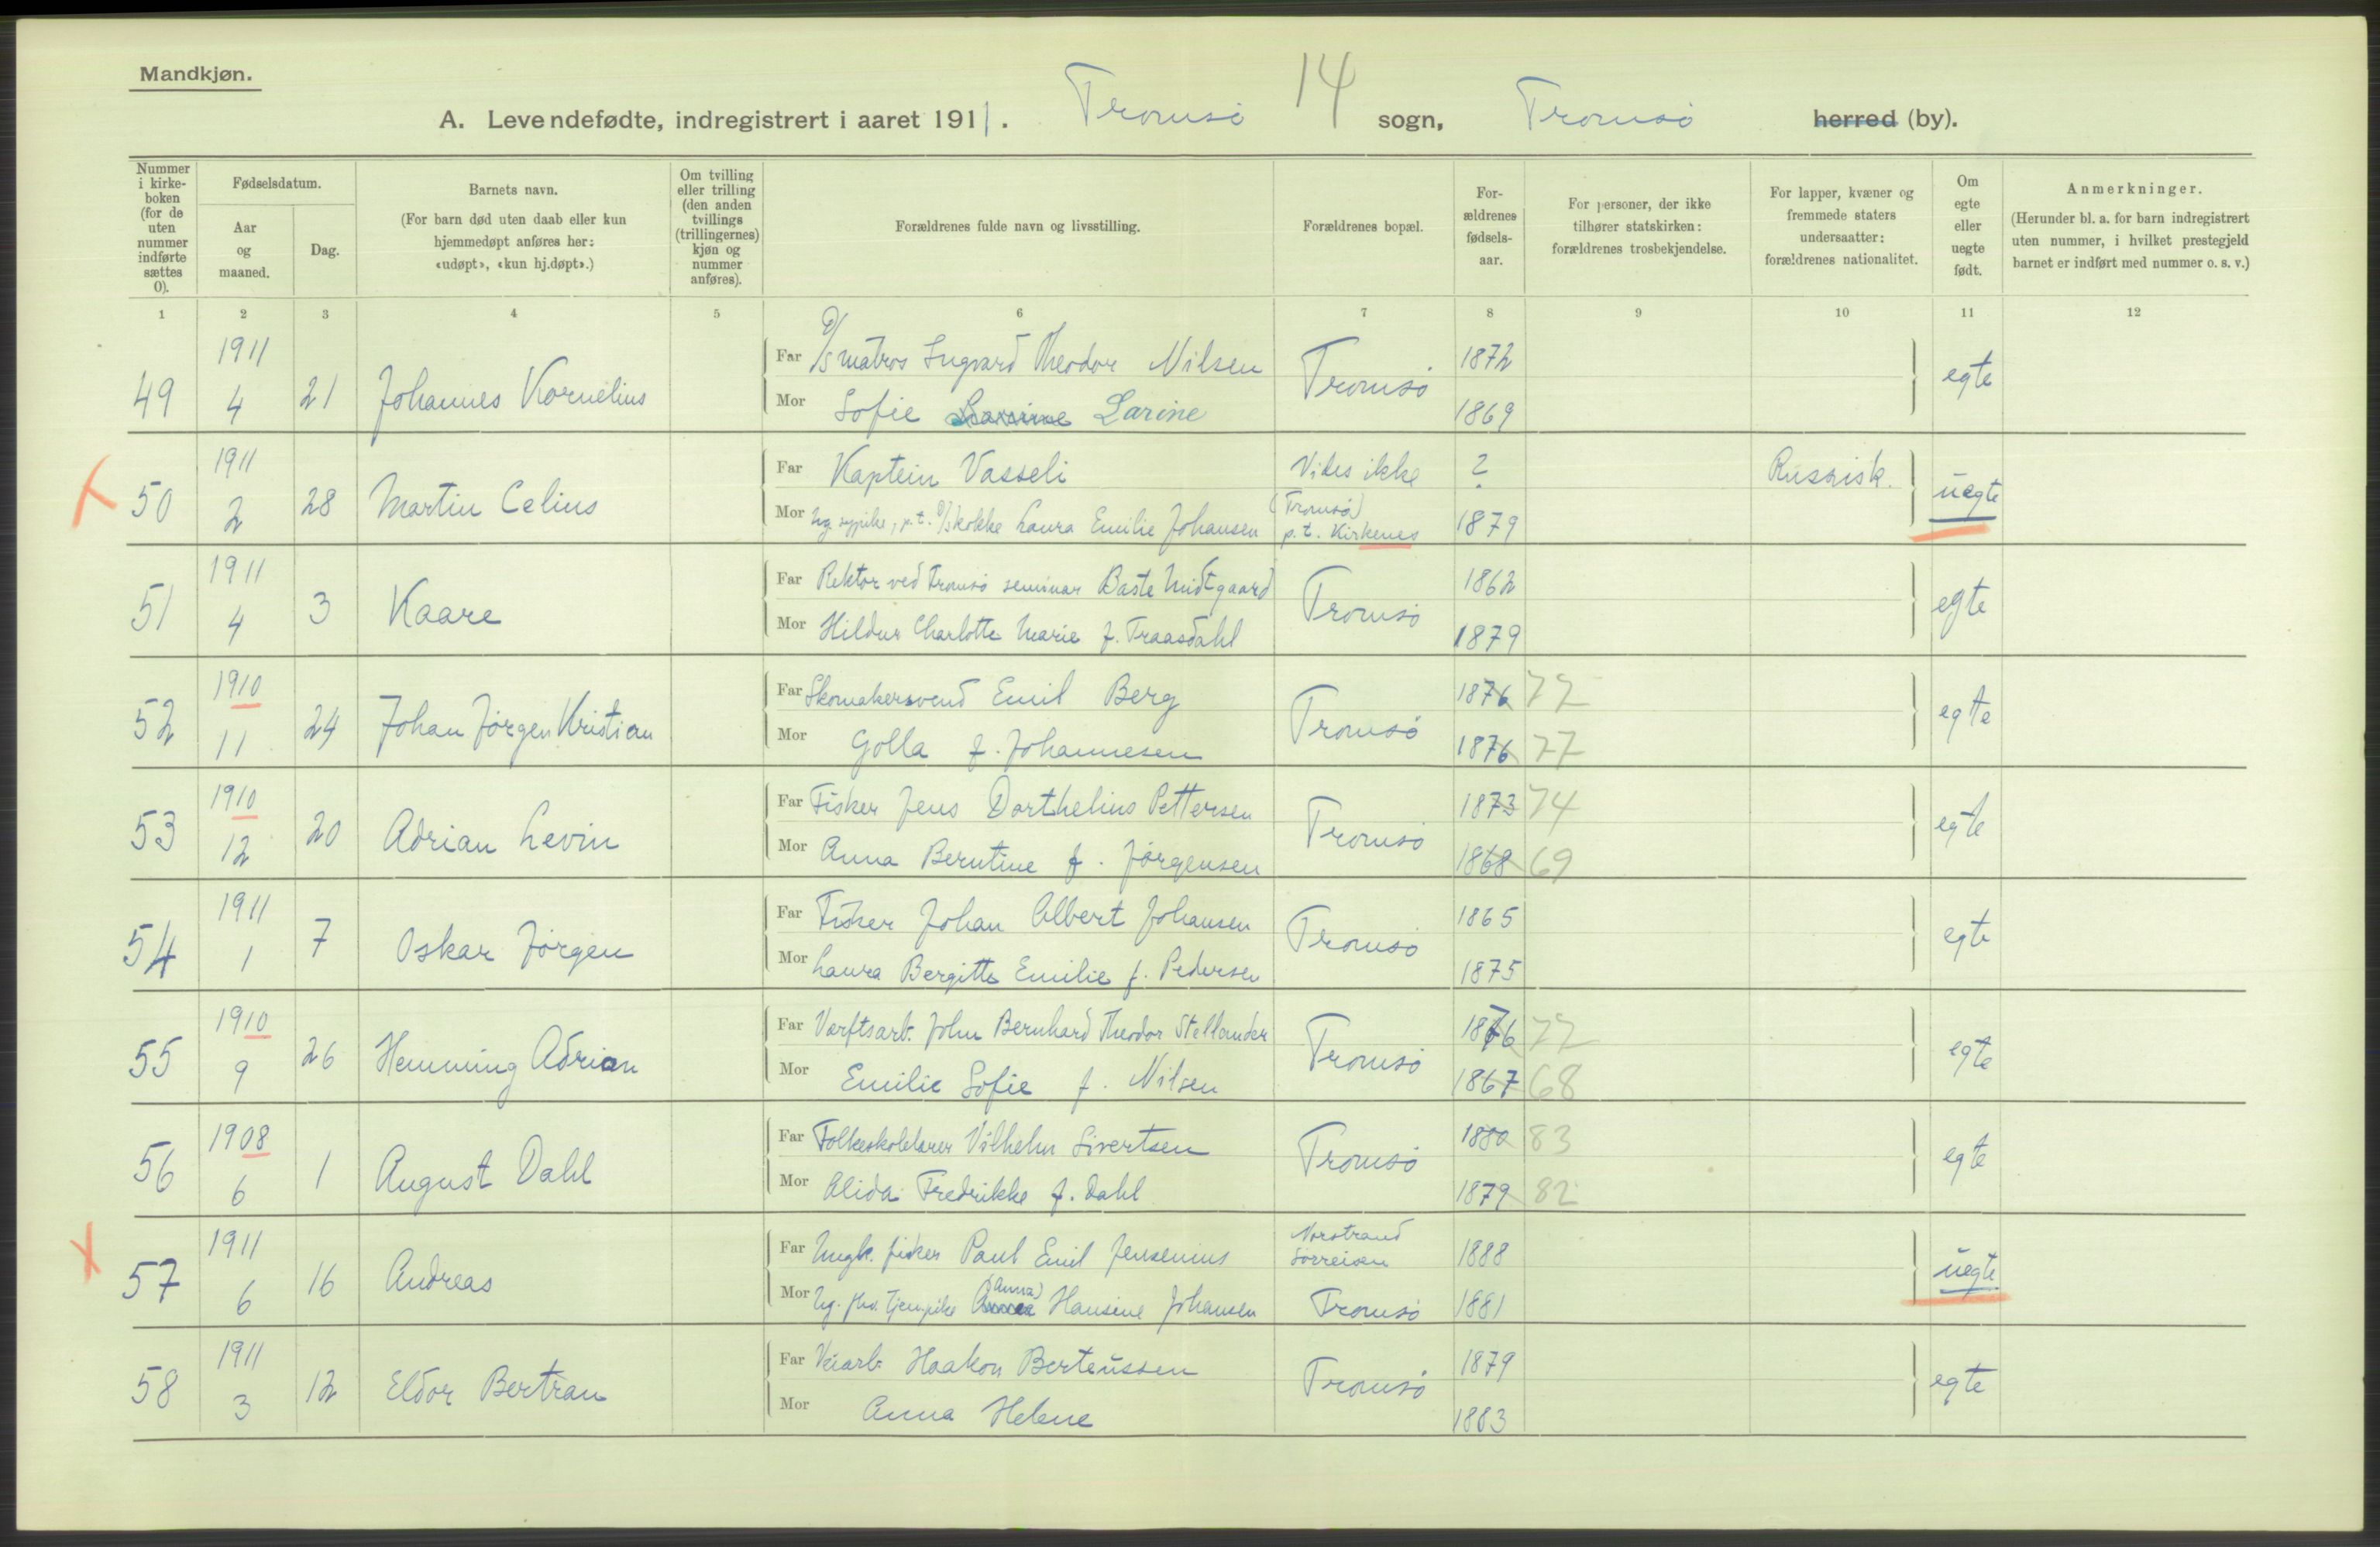 Mandkjøn.
14
A. Levendefødte, indregistrert i aaret 1911. Tromsø sogn, Tromsø herred (by).
Nummer i kirkeboken (for de uten nummer indførte sættes 0).
Fødselsdatum.
Aar og maaned.
Dag.
Barnets navn.
(For barn død uten daab eller kun hjemmedøpt anføres her: «udøpt», «kun hj.døpt».)
Om tvilling eller trilling (den anden tvillings (trillingernes) kjøn og nummer anføres).
Forældrenes fulde navn og livsstilling.
Forældrenes bopæl.
Forældrenes fødselsaar.
For personer, der ikke tilhører statskirken: forældrenes trosbekjendelse.
For lapper, kvæner og fremmede staters undersaatter: forældrenes nationalitet.
Om egte eller uegte født.
Anmerkninger.
(Herunder bl. a. for barn indregistrert uten nummer, i hvilket prestegjeld barnet er indført med nummer o. s. v.)
1 2 3 4 5 6 7 8 9 10 11 12
49 1911 4 21 Johannes Kornelius
Far D/S matros Ingvard Theodor Nilsen Tromsø 1872 egte
Mor Sofie Larine 1869
50 1911 2 28 Martin Celius
Far Kaptein Vasseli Vides ikke ? Russisk. uegte
Mor Ug. sypike, p.t. D/S kokke Laura Emilie Johansen (Tromsø) p.t. Kirkenes 1879
51 1911 4 3 Kaare
Far Rektor ved Tromsø seminar Baste Midtgaard Tromsø 1862 egte
Mor Hildur Charlotte Marie f. Traasdahl 1879
52 1910 11 24 Johan Jørgen Kristian
Far Skomakersvend Emil Berg Tromsø 1876 72 egte
Mor Golla f. Johannesen 1876 77
53 1910 12 20 Adrian Levin
Far Fisker Jens Dorthelius Pettersen Tromsø 1873 74 egte
Mor Anna Berntine f. Jørgensen 1868 69
54 1911 1 7 Oskar Jørgen
Far Fisker Johan Albert Johansen Tromsø 1865 egte
Mor Laura Bergitte Emilie f. Pedersen 1875
55 1910 9 26 Hemming Adrian
Far Værftsarb. John Bernhard Theodor Stellander Tromsø 1876 72 egte
Mor Emilie Sofie f. Nilsen 1867 68
56 1908 6 1 August Dahl
Far Folkeskolelærer Vilhelm Sivertsen Tromsø 1880 83 egte
Mor Alida Fredrikke f. Dahl 1879 82
57 1911 6 16 Andreas
Far Ungk. fisker Paul Emil Jensenius Norstrand Sørreisen 1888 uegte
Mor Ug. fhv. tjenpike (Anna) Hansine Johansen Tromsø 1881
58 1911 3 12 Eldor Bertran
Far Veiarb. Haakon Berteussen Tromsø 1879 egte
Mor Anna Helene 1883